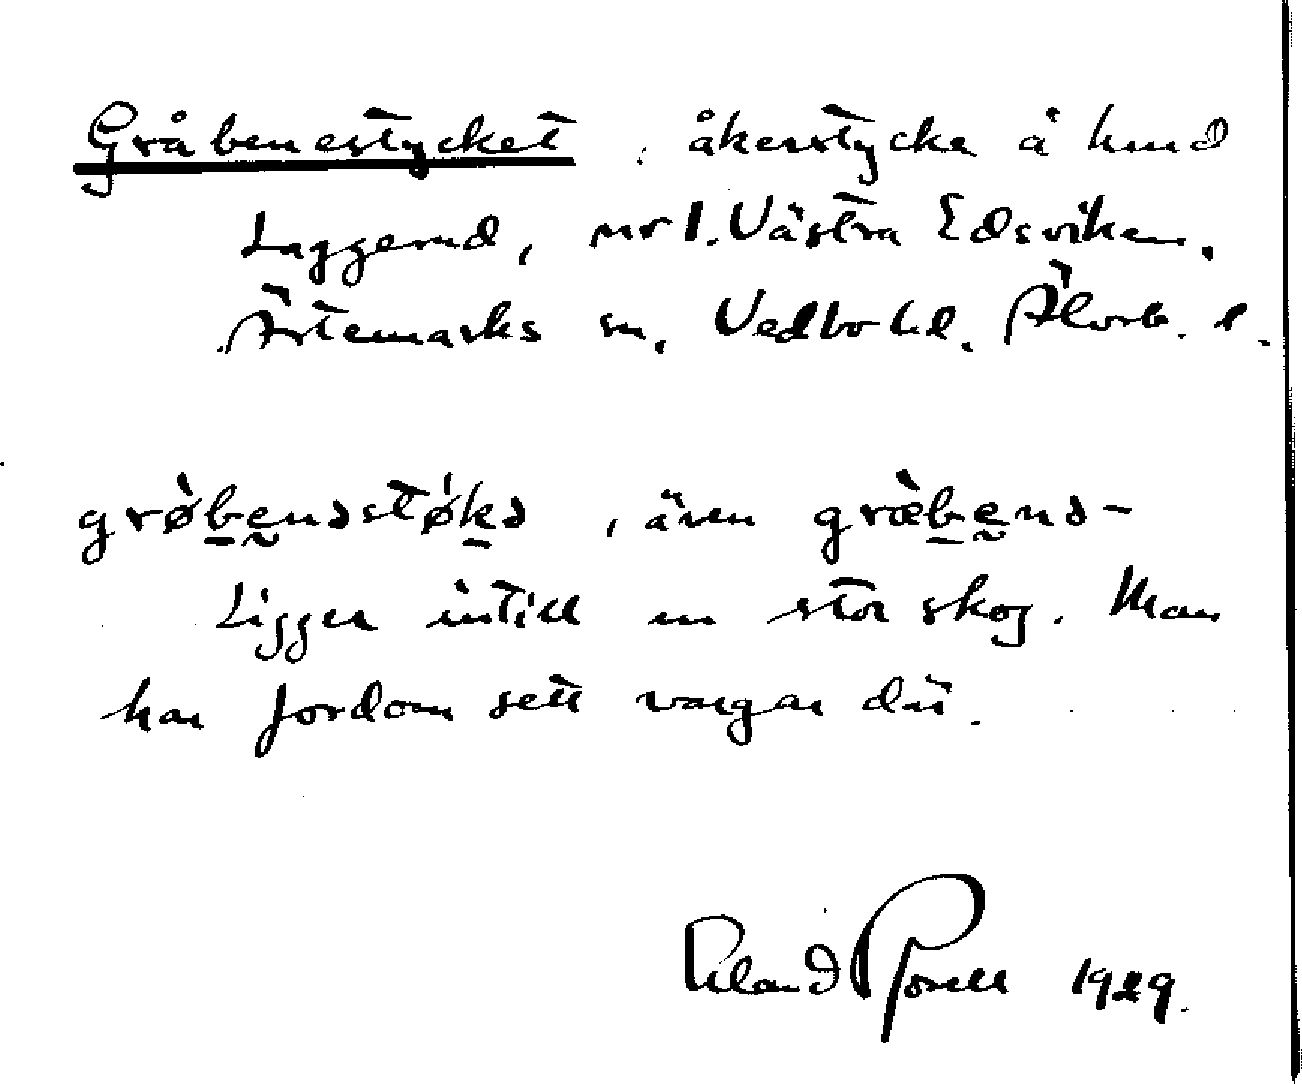 Gråbenestycket, åkerstycke å hmd
Laggerud, nr 1. Västra Edsviken.
Ärtemarks sn, Vedbo hd. Älvsb. l.
grø̀benəstø̀kə, även græ̀benə-
Ligger intill en stor skog. Man
har fordom sett vargar där.
1929.